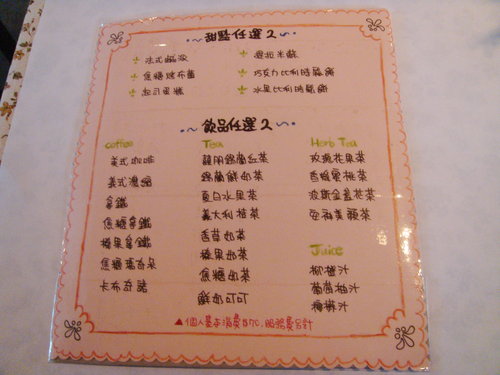 甜點任選2
法式鹹派
提拉米蘇
焦糖烤布蕾
巧克力比利時鬆餅
起司蛋糕
水果比利時鬆餅
飲品任選2
coffee
Tea
Herb Tea
美式咖啡
錫蘭紅茶
玫瑰花果茶
美式濃縮
錫蘭鮮奶茶
香檳蜜桃茶
拿鐵
夏日水果茶
波斯金盞花茶
焦糖拿鐵
義大利桔茶
榛果拿鐵
香草奶茶
Juice
焦糖瑪奇朵
榛果奶茶
柳橙汁
卡布奇諾
焦糖奶茶
葡萄柚汁
鮮奶可可
檸檬汁
▲個人基本消費$70.服務費另計